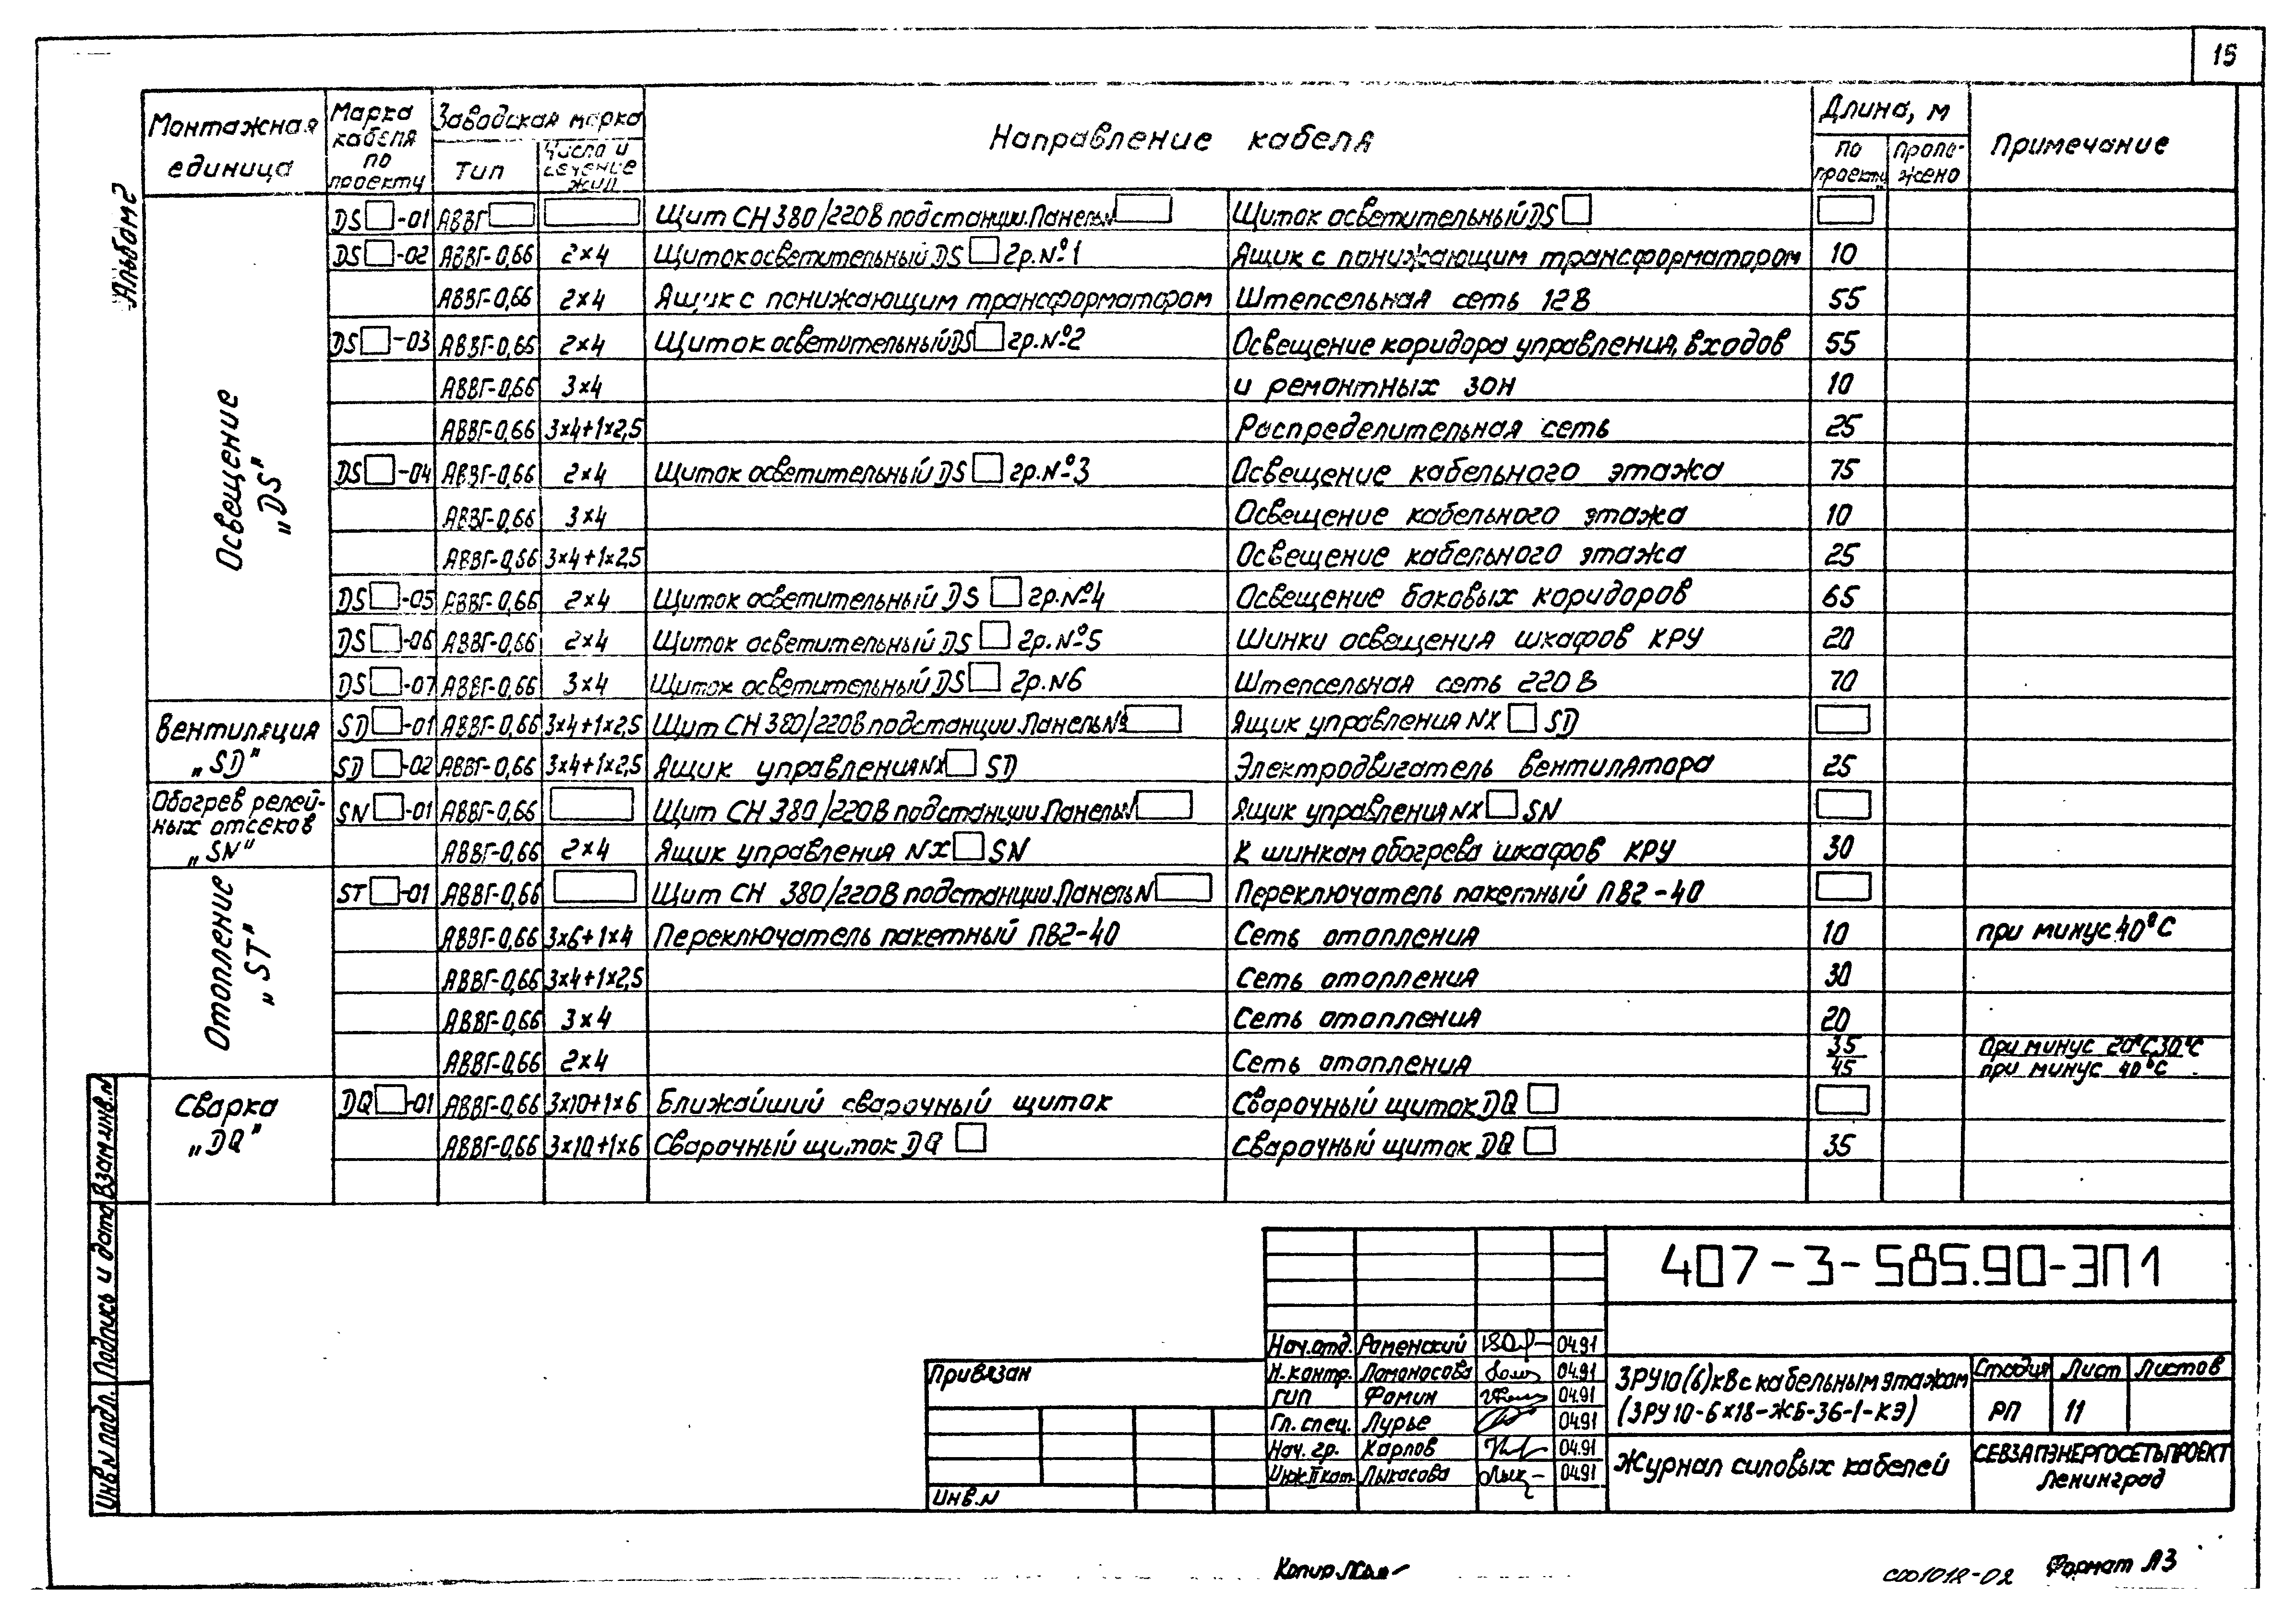 15
Альбом 2
Монтажная единица | Марка кабеля по проекту | Заводская марка | Направление кабеля | Длина, м | Примечание
Тип | Число и сечение жил | По проекту | Проложено
Освещение „DS"
DS □-01 | АВВГ □ | □ | Щит СН 380/220В подстанции. Панель N □ | Щиток осветительный DS □ | □
DS □-02 | АВВГ-0,66 | 2×4 | Щиток осветительный DS □ гр.№1 | Ящик с понижающим трансформатором | 10
АВВГ-0,66 | 2×4 | Ящик с понижающим трансформатором | Штепсельная сеть 12В | 55
DS □-03 | АВВГ-0,66 | 2×4 | Щиток осветительный DS □ гр.№2 | Освещение коридора управления, входов | 55
АВВГ-0,66 | 3×4 | и ремонтных зон | 10
АВВГ-0,66 | 3×4+1×2,5 | Распределительная сеть | 25
DS □-04 | АВВГ-0,66 | 2×4 | Щиток осветительный DS □ гр.№3 | Освещение кабельного этажа | 75
АВВГ-0,66 | 3×4 | Освещение кабельного этажа | 10
АВВГ-0,66 | 3×4+1×2,5 | Освещение кабельного этажа | 25
DS □-05 | АВВГ-0,66 | 2×4 | Щиток осветительный DS □ гр.№4 | Освещение боковых коридоров | 65
DS □-06 | АВВГ-0,66 | 2×4 | Щиток осветительный DS □ гр.№5 | Шинки освещения шкафов КРУ | 20
DS □-07 | АВВГ-0,66 | 3×4 | Щиток осветительный DS □ гр.N6 | Штепсельная сеть 220В | 70
Вентиляция „SD"
SD □-01 | АВВГ-0,66 | 3×4+1×2,5 | Щит СН 380/220В подстанции. Панель № □ | Ящик управления NX □ SD | □
SD □-02 | АВВГ-0,66 | 3×4+1×2,5 | Ящик управления NX □ SD | Электродвигатель вентилятора | 25
Обогрев релейных отсеков „SN"
SN □-01 | АВВГ-0,66 | □ | Щит СН 380/220В подстанции. Панель N □ | Ящик управления NX □ SN | □
АВВГ-0,66 | 2×4 | Ящик управления NX □ SN | К шинкам обогрева шкафов КРУ | 30
Отопление „ST"
ST □-01 | АВВГ-0,66 | □ | Щит СН 380/220В подстанции. Панель N □ | Переключатель пакетный ПВ2-40 | □
АВВГ-0,66 | 3×6+1×4 | Переключатель пакетный ПВ2-40 | Сеть отопления | 10 | при минус 40°С
АВВГ-0,66 | 3×4+1×2,5 | Сеть отопления | 30
АВВГ-0,66 | 3×4 | Сеть отопления | 20
АВВГ-0,66 | 2×4 | Сеть отопления | 35/45 | При минус 20°С, 30°С
при минус 40°С
Сварка „DQ"
DQ □-01 | АВВГ-0,66 | 3×10+1×6 | Ближайший сварочный щиток | Сварочный щиток DQ □ | □
АВВГ-0,66 | 3×10+1×6 | Сварочный щиток DQ □ | Сварочный щиток DQ □ | 35
Взам инв.N
Подпись и дата
Инв.N подл.
407-3-585.90-ЭП1
Нач.отд. Роменский 04.91
Н.контр. Ломоносова 04.91
ГИП Фомин 04.91
Гл. спец. Лурье 04.91
Нач. гр. Карлов 04.91
Инж.II кат. Лыкасова 04.91
Привязан
Инв.N
ЗРУ 10(6)кВ с кабельным этажом
(ЗРУ 10-6×18-ЖБ-36-1-КЭ)
Стадия | Лист | Листов
РП | 11
Журнал силовых кабелей
СЕВЗАПЭНЕРГОСЕТЬПРОЕКТ
Ленинград
Копир.
С001018-02
Формат А3